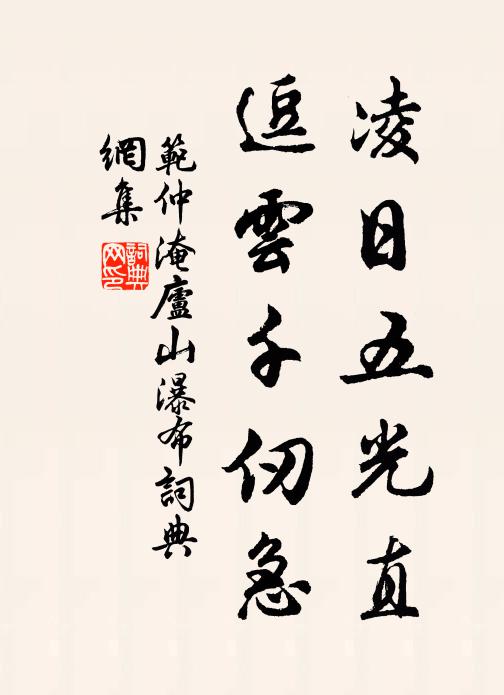 凌日五光直
逗雲千仞急
範仲淹廬山瀑布詞典
網集
詞典
网印